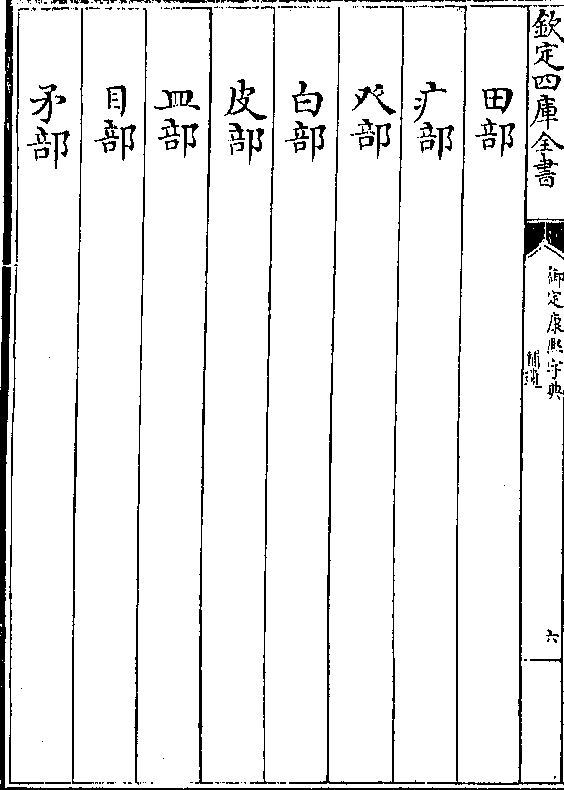 欽定四庫全書
御定康熙字典
補遺
六
田部
疒部
癶部
白部
皮部
皿部
目部
矛部